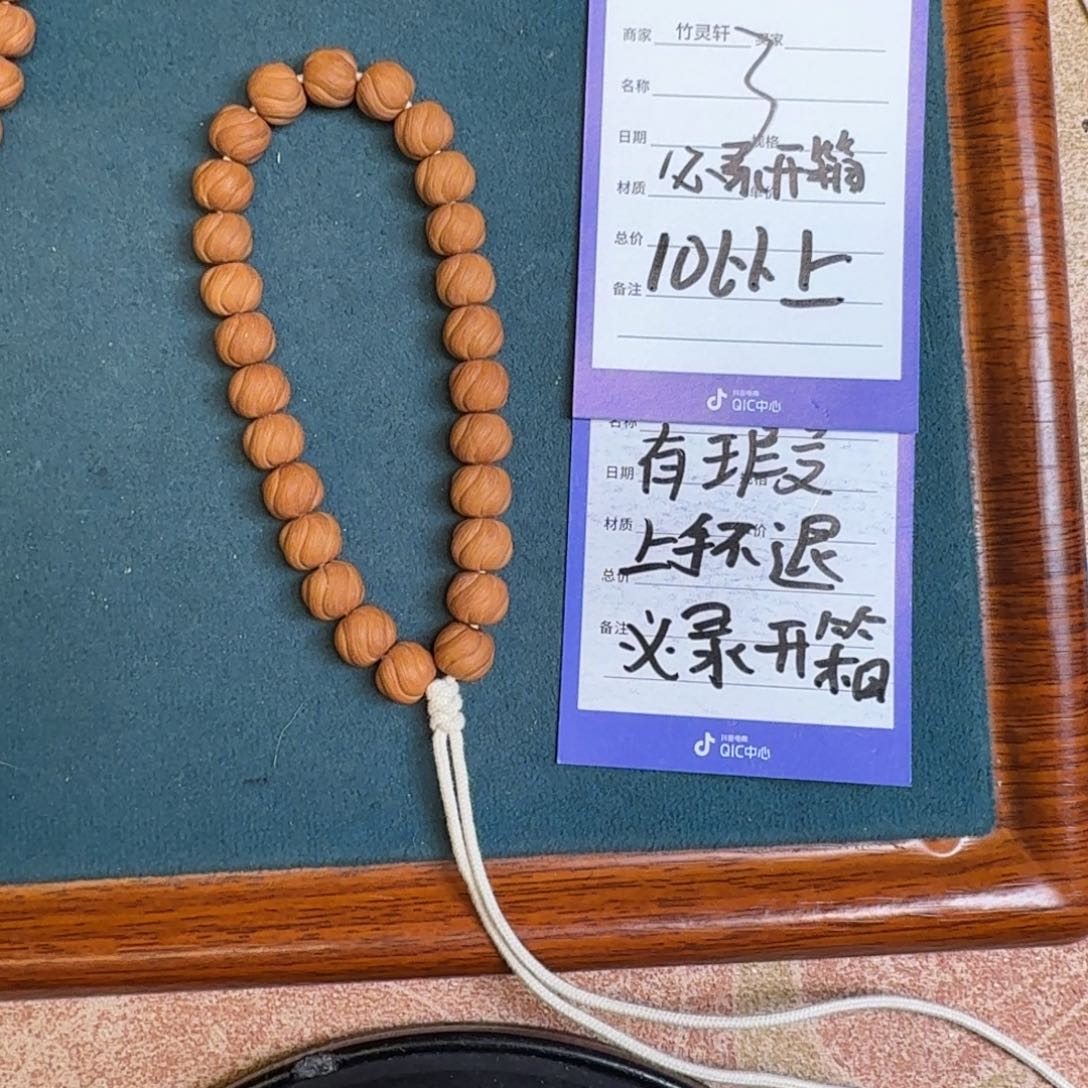 商家 竹灵轩 买家
3
名称
日期 规格
必录开箱
材质 单价
总价
10以上
备注
抖音电商
QIC中心
名称
有瑕疵
日期 规格
材质 单价
上手不退
总价
备注
必录开箱
抖音电商
QIC中心